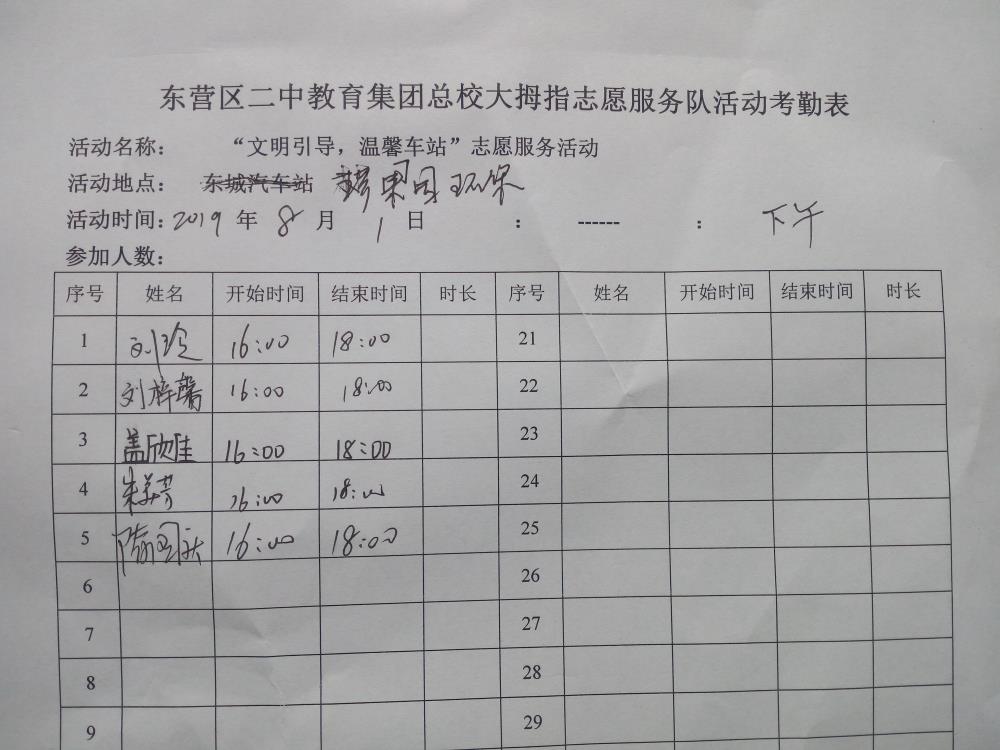 东营区二中教育集团总校大拇指志愿服务队活动考勤表
活动名称： “文明引导，温馨车站”志愿服务活动
活动地点： 东城汽车站 环保
活动时间：2019 年 8 月 1 日 ： ------ ： 下午
参加人数：
序号 姓名 开始时间 结束时间 时长 序号 姓名 开始时间 结束时间 时长
1 刘玲 16:00 18:00 21
2 刘梓馨 16:00 18:00 22
3 盖欣佳 16:00 18:00 23
4 朱美芳 16:00 18:00 24
5 16:00 18:00 25
6 26
7 27
8 28
9 29